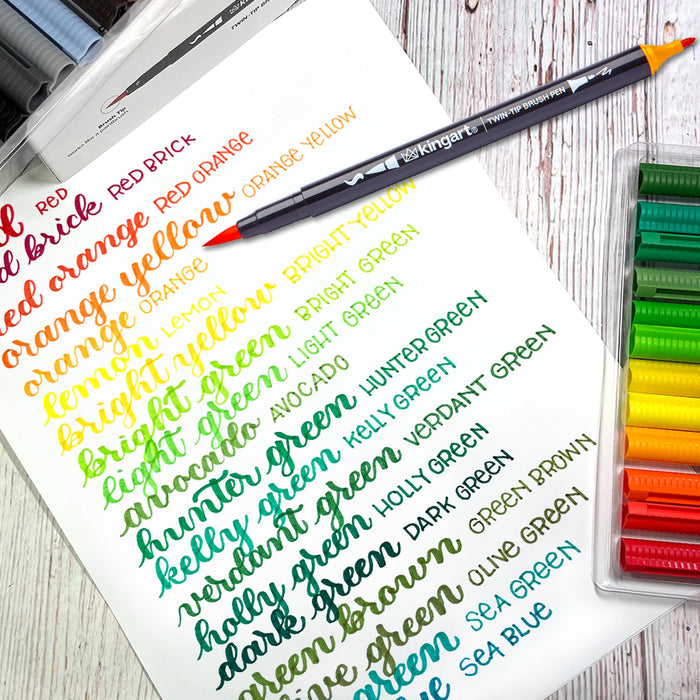 Brush Tip
works like a paintbrush
kingart® TWIN-TIP BRUSH PEN
RED
red brick RED BRICK
red orange RED ORANGE
orange yellow ORANGE YELLOW
orange ORANGE
lemon LEMON
bright yellow BRIGHT YELLOW
bright green BRIGHT GREEN
light green LIGHT GREEN
avocado AVOCADO
hunter green HUNTER GREEN
kelly green KELLY GREEN
verdant green VERDANT GREEN
holly green HOLLY GREEN
dark green DARK GREEN
green brown GREEN BROWN
olive green OLIVE GREEN
green SEA GREEN
SEA BLUE